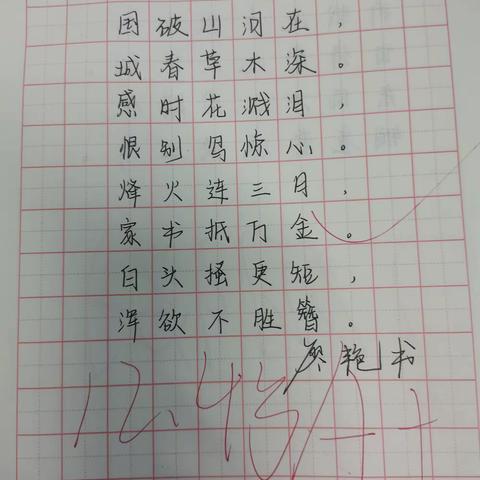 国破山河在，
城春草木深。
感时花溅泪，
恨别鸟惊心。
烽火连三月，
家书抵万金。
白头搔更短，
浑欲不胜簪。
艳书